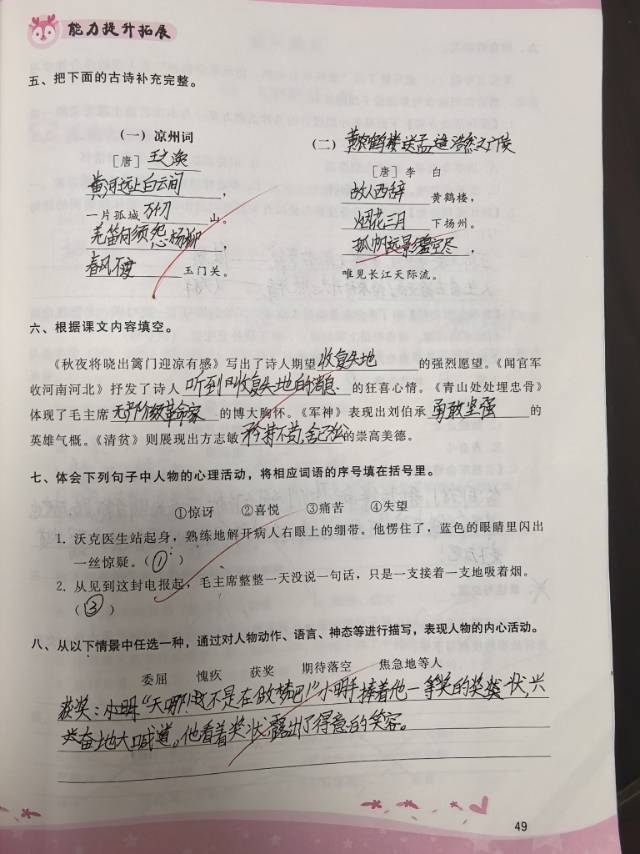 能力提升拓展
五、把下面的古诗补充完整。
（一）凉州词
［唐］王之涣
黄河远上白云间，
一片孤城万仞山。
羌笛何须怨杨柳，
春风不度玉门关。
（二）黄鹤楼送孟浩然之广陵
［唐］李 白
故人西辞黄鹤楼，
烟花三月下扬州。
孤帆远影碧空尽，
唯见长江天际流。
六、根据课文内容填空。
《秋夜将晓出篱门迎凉有感》写出了诗人期望收复失地的强烈愿望。《闻官军
收河南河北》抒发了诗人听到收复失地的消息的狂喜心情。《青山处处埋忠骨》
体现了毛主席无产阶级革命家的博大胸怀。《军神》表现出刘伯承勇敢坚强的
英雄气概。《清贫》则展现出方志敏矜持不苟,舍己为公的崇高美德。
七、体会下列句子中人物的心理活动，将相应词语的序号填在括号里。
①惊讶 ②喜悦 ③痛苦 ④失望
1. 沃克医生站起身，熟练地解开病人右眼上的绷带。他愣住了，蓝色的眼睛里闪出
一丝惊疑。（①）
2. 从见到这封电报起，毛主席整整一天没说一句话，只是一支接着一支地吸着烟。
（③）
八、从以下情景中任选一种，通过对人物动作、语言、神态等进行描写，表现人物的内心活动。
委屈 愧疚 获奖 期待落空 焦急地等人
获奖：小明“天哪!这不是在做梦吧!”小明手捧着他一等奖的奖状,兴
奋地大喊道。他看着奖状,露出了得意的笑容。
49